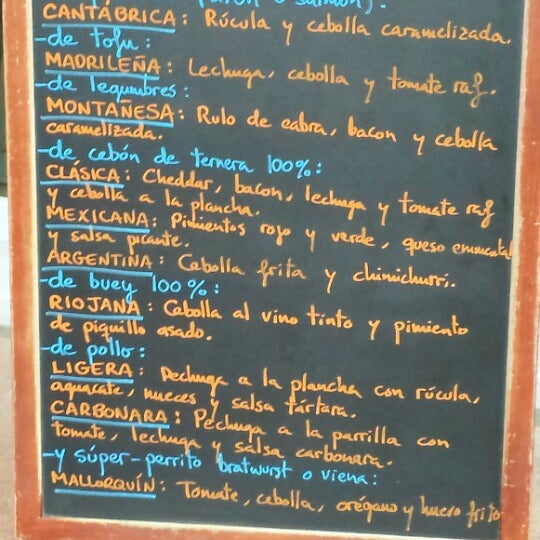 CANTÁBRICA: Rúcula y cebolla caramelizada.
-de tofu:
MADRILEÑA: Lechuga, cebolla y tomate raf.
-de legumbres:
MONTAÑESA: Rulo de cabra, bacon y cebolla
caramelizada.
-de cebón de ternera 100%:
CLÁSICA: Cheddar, bacon, lechuga y tomate raf
y cebolla a la plancha.
MEXICANA: Pimientos rojo y verde, queso emmental
y salsa picante.
ARGENTINA: Cebolla frita y chimichurri.
-de buey 100%:
RIOJANA: Cebolla al vino tinto y pimiento
de piquillo asado.
-de pollo:
LIGERA: Pechuga a la plancha con rúcula,
aguacate, nueces y salsa tártara.
CARBONARA: Pechuga a la parrilla con
tomate, lechuga y salsa carbonara.
-y súper-perrito bratwurst o viena:
MALLORQUÍN: Tomate, cebolla, orégano y huevo frito